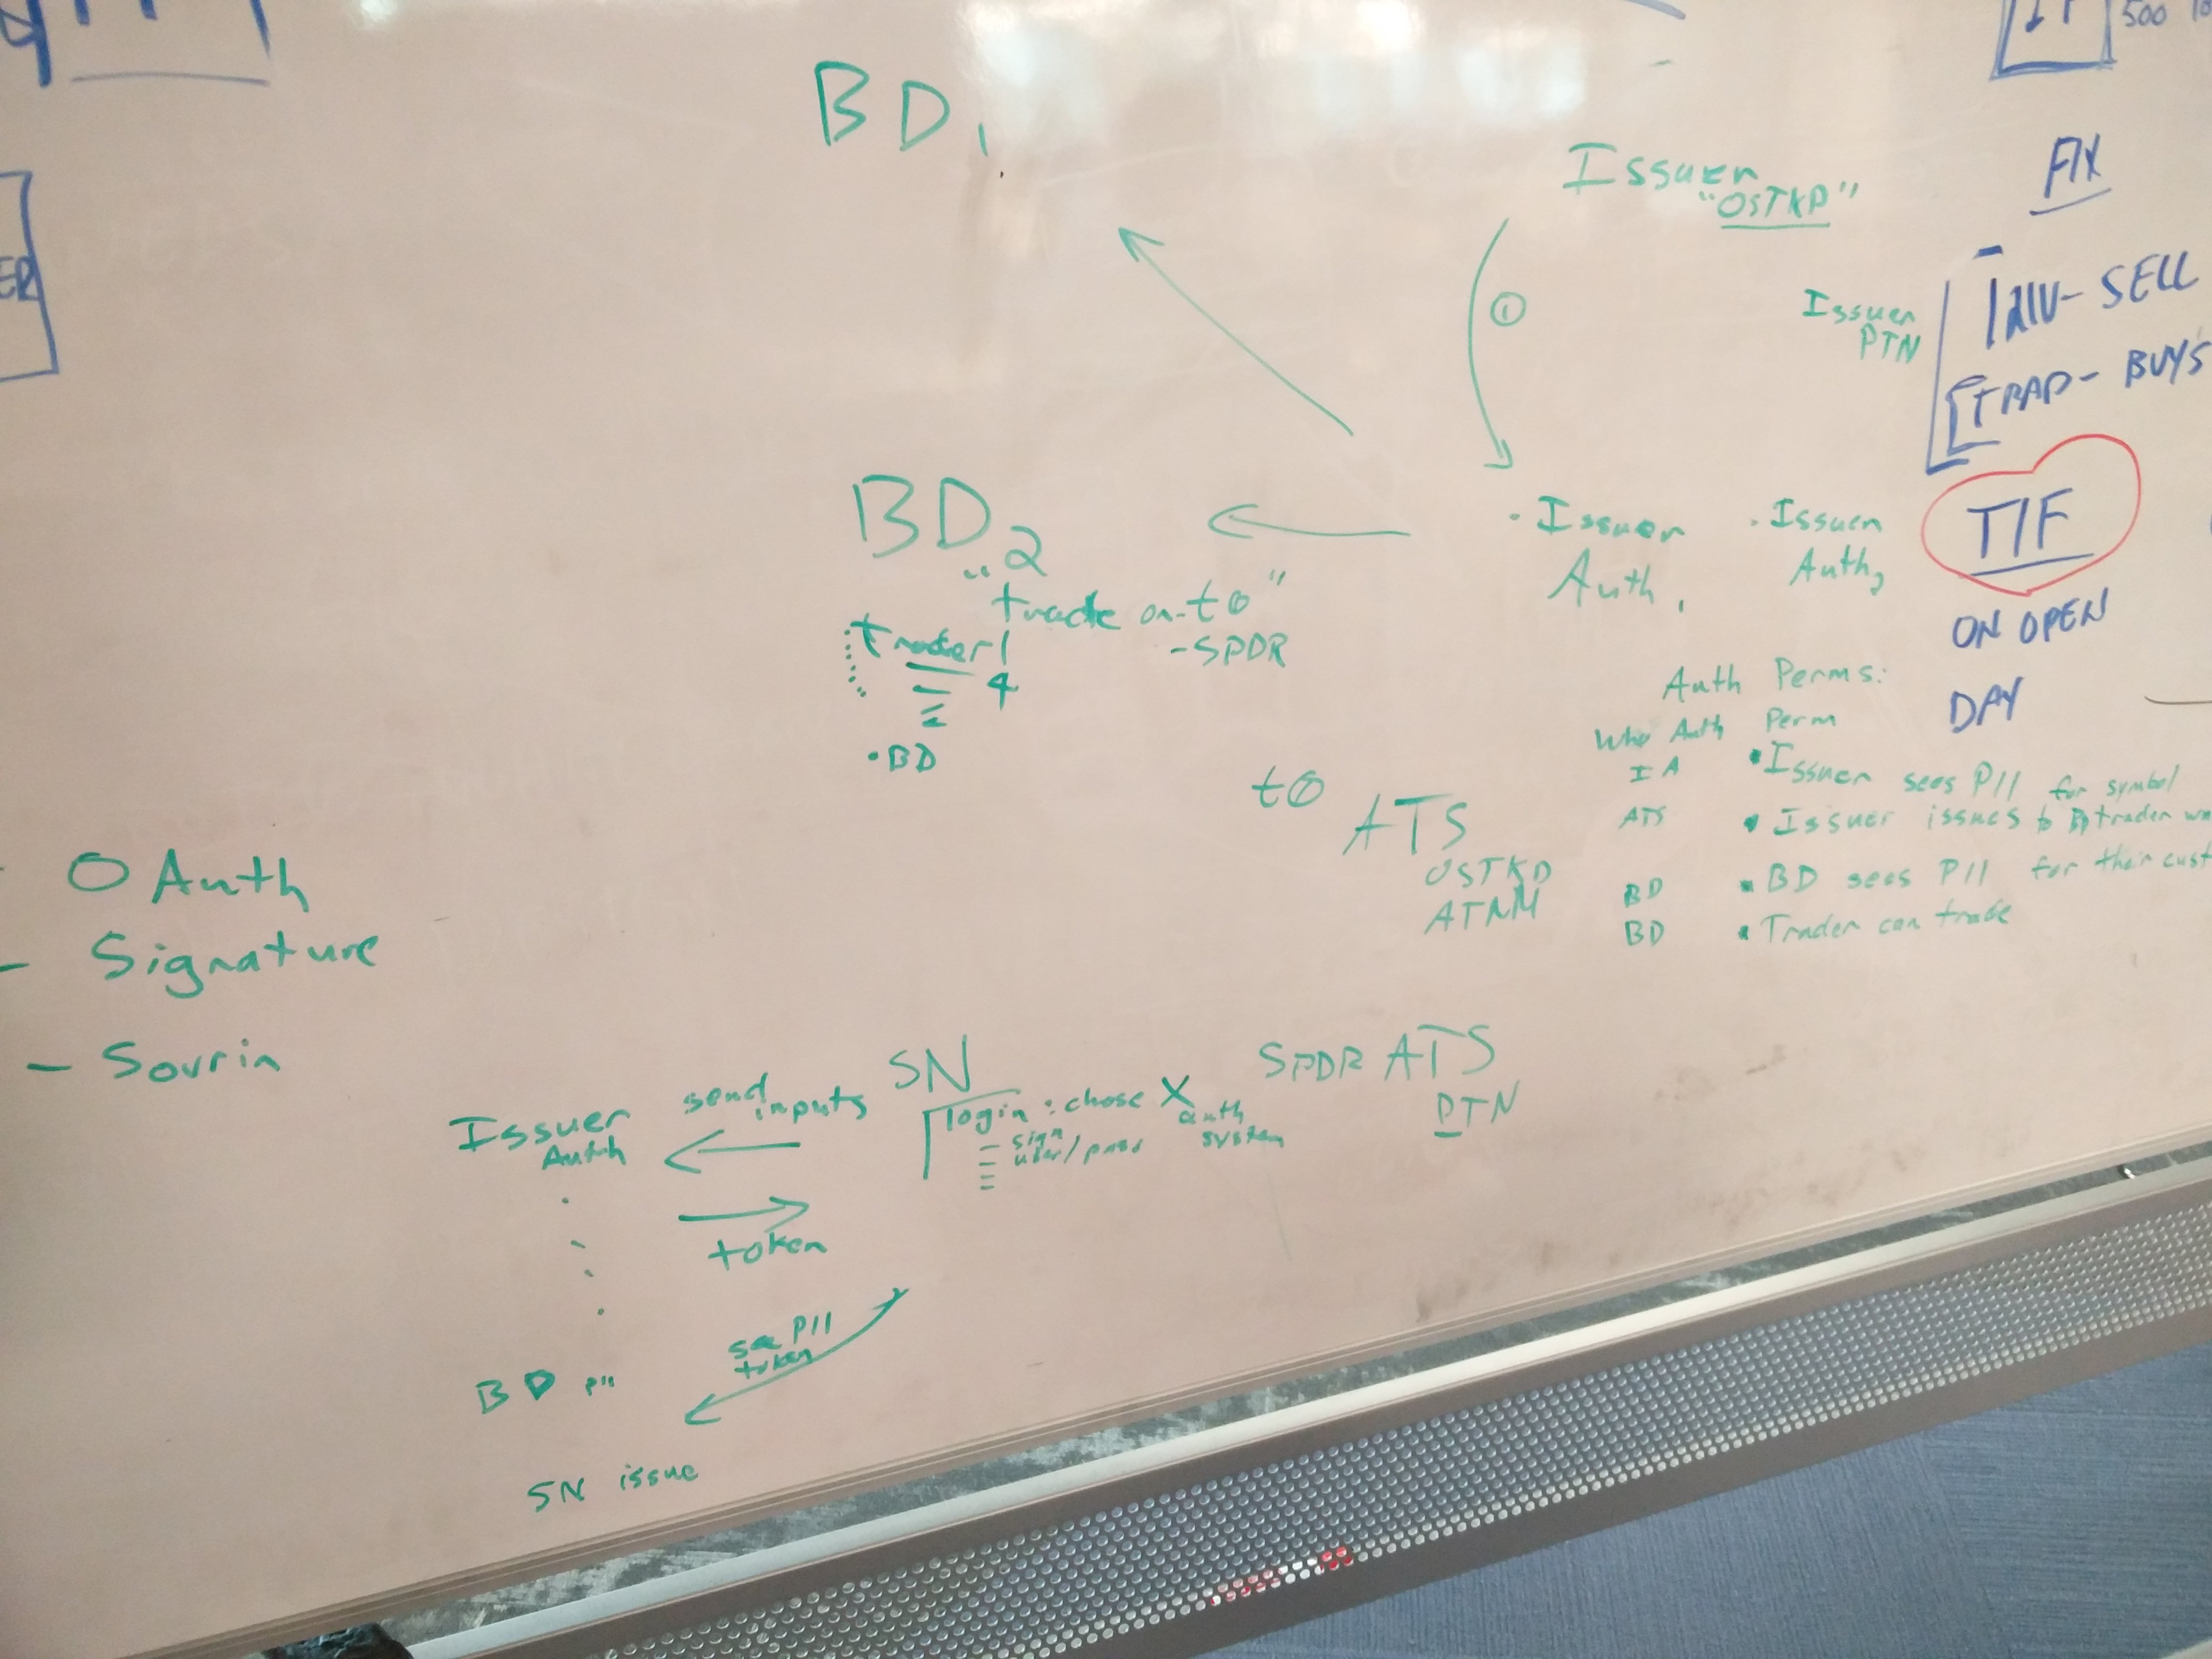 500
BD1
Issuer
"OSTKP"
FIX
ER
①
Issuer
PTN
INV- SELL
TRAP- BUYS
BD2
"trade on to"
-SPDR
Trader 1
4
•BD
• Issuer
Auth1
• Issuer
Auth2
TIF
ON OPEN
DAY
Auth Perms:
Who Auth Perm
IA • Issuer sees PII for symbol
ATS • Issuer issues to trader
BD • BD sees PII for their cust
BD • Trader can trade
to ATS
OSTKD
- OAuth
- Signature
- Sovrin
SN
SPDR ATS
PTN
login : chose X
auth
system
- sign
- user/pass
Issuer
Auth
send
inputs
token
see PII
token
BD PII
SN issue